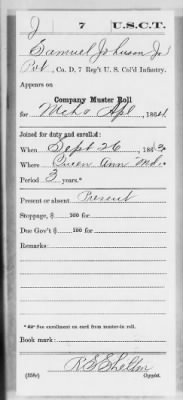 J 7 U.S.C.T.
Samuel Johnson Jr
Pvt, Co. D, 7 Reg't U. S. Col'd Infantry.
Appears on
Company Muster Roll
for Mch & Apl, 1864.
Joined for duty and enrolled:
When Sept 26, 1863.
Where Queen Ann Md.
Period 3 years.*
Present or absent Present
Stoppage, $ 100 for
Due Gov't $ 100 for
Remarks:
* See enrollment on card from muster-in roll.
Book mark:
R E Shelton
(358c) Copyist.